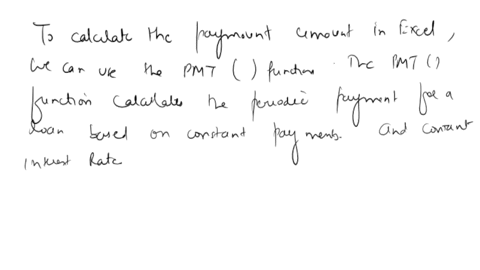 To calculate the paymount amount in Excel,
we can use the PMT () function. The PMT ()
function calculates the periodic payment for a
loan based on constant payments. and constant
interest Rate